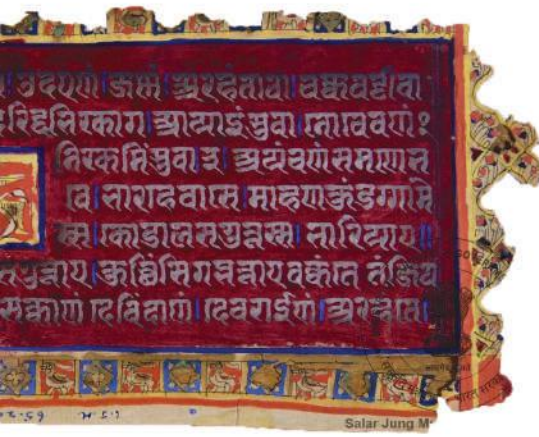 उदएणं जन्नं अरहंतावा। चक्कवट्टीवा
दरिद्दभिरकाग। आयाइंसुवा। नोचेवणं १
निरकमिंसुवा ३ अयंचणं समणे भ
वे। भारहेवासे माहणकुंडग्गामे
स्स। कोडालसगुत्तस्स। भारियाए॥
सगुत्ताए कुच्छिंसि गब्भत्ताए वक्कंते तं जीय
सक्काणं देविंदाणं। देवराईणं। अरहंते।
Salar Jung M